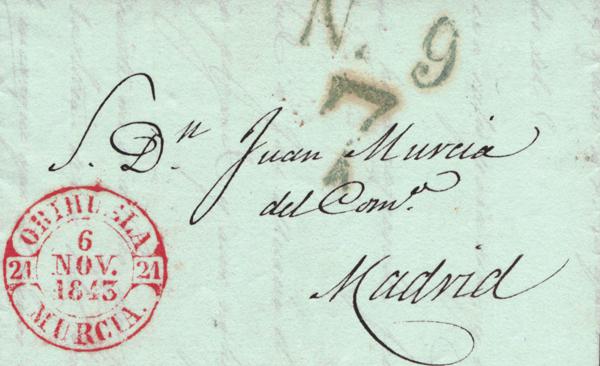 N. 9
7
S. Dn. Juan Murcia
del Como.
Madrid
ORIHUELA
21 6 21
NOV.
1843
MURCIA.